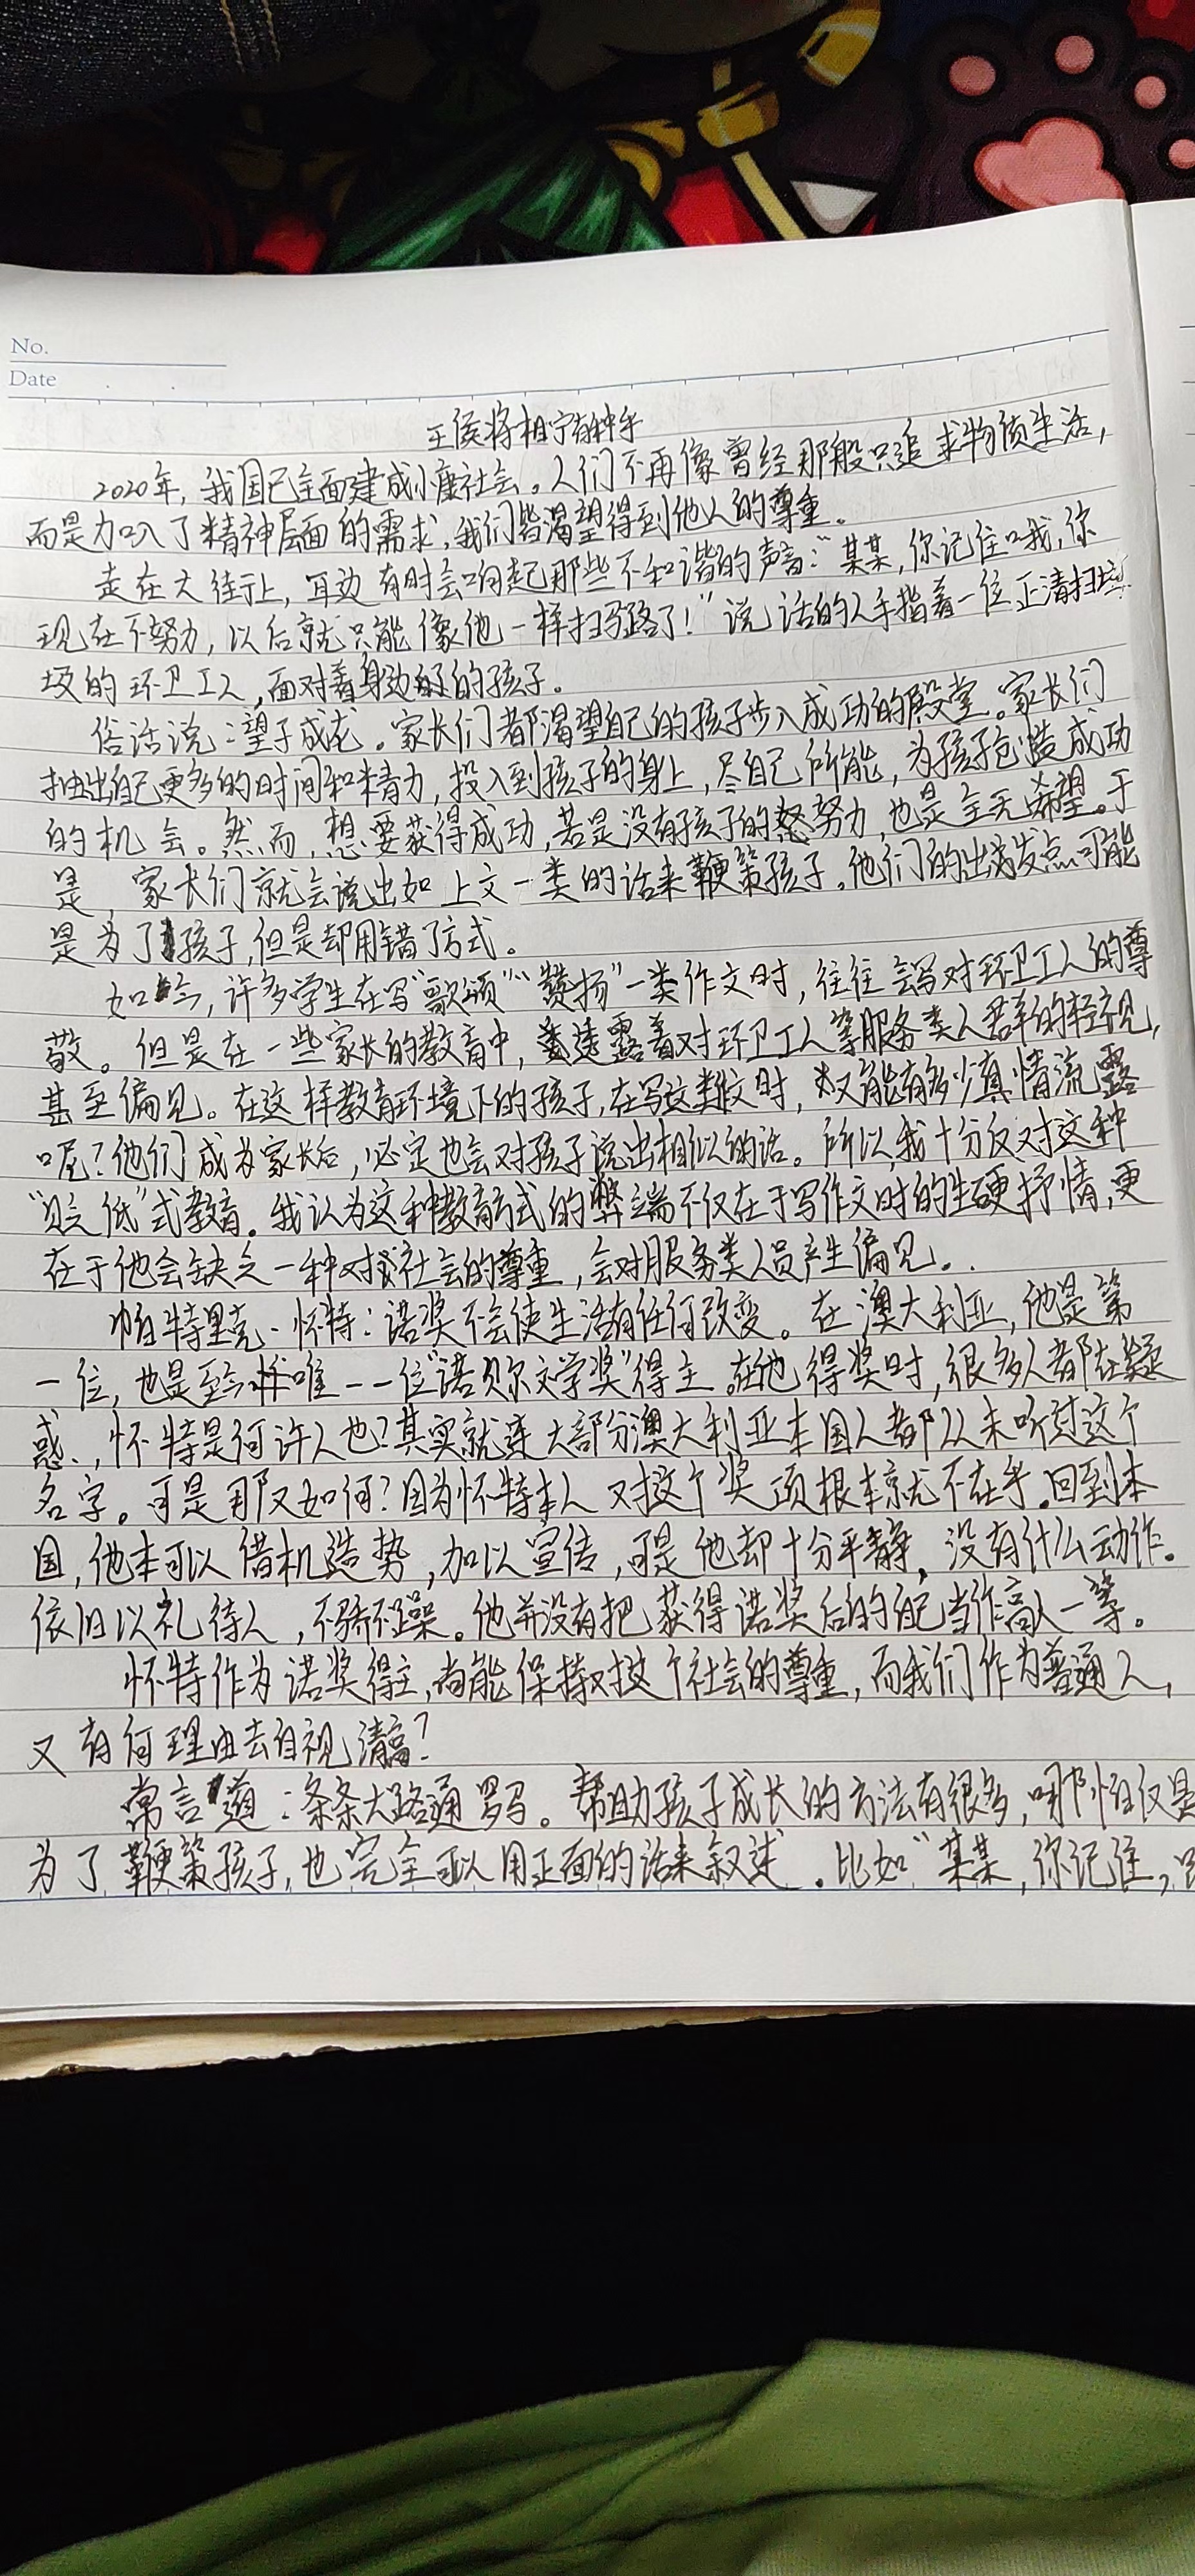 No.
Date
王侯将相宁有种乎
2020年，我国已全面建成小康社会。人们不再像曾经那般只追求物质生活，
而是加入了精神层面的需求，我们皆渴望得到他人的尊重。
走在大街上，耳边有时会响起那些不和谐的声音：“某某，你记住哦，你
现在不努力，以后就只能像他一样扫马路了！”说话的人手指着一位正清扫垃
圾的环卫工人，面对着身边的孩子。
俗话说：望子成龙。家长们都渴望自己的孩子步入成功的殿堂。家长们
抽出自己更多的时间和精力，投入到孩子的身上，尽自己所能，为孩子创造成功
的机会。然而，想要获得成功，若是没有孩子的努力，也是全无希望。于
是，家长们就会说出如上文一类的话来鞭策孩子。他们的出发点可能
是为了孩子，但是却用错了方式。
如今，许多学生在写“歌颂”“赞扬”一类作文时，往往会写对环卫工人的尊
敬。但是在一些家长的教育中，透露着对环卫工人等服务类人群的轻视，
甚至偏见。在这样教育环境下的孩子，在写这类文时，又能有多少真情流露
呢？他们成为家长后，必定也会对孩子说出相似的话。所以，我十分反对这种
“贬低”式教育。我认为这种教育方式的弊端不仅在于写作文时的生硬抒情，更
在于他会缺乏一种对社会的尊重，会对服务类人员产生偏见。
帕特里克·怀特：诺奖不会使生活有任何改变。在澳大利亚，他是第
一位，也是至今唯一一位“诺贝尔文学奖”得主。在他得奖时，很多人都在疑
惑，怀特是何许人也？其实就连大部分澳大利亚本国人都从未听过这个
名字。可是那又如何？因为怀特本人对这个奖项根本就不在乎。回到本
国，他本可以借机造势，加以宣传，可是他却十分平静，没有什么动作。
依旧以礼待人，不骄不躁。他并没有把获得诺奖后的自己当作高人一等。
怀特作为诺奖得主，尚能保持对这个社会的尊重，而我们作为普通人，
又有何理由去自视清高？
常言道：条条大路通罗马。帮助孩子成长的方法有很多，哪怕仅是
为了鞭策孩子，也完全可以用正面的话来叙述。比如“某某，你记住，只